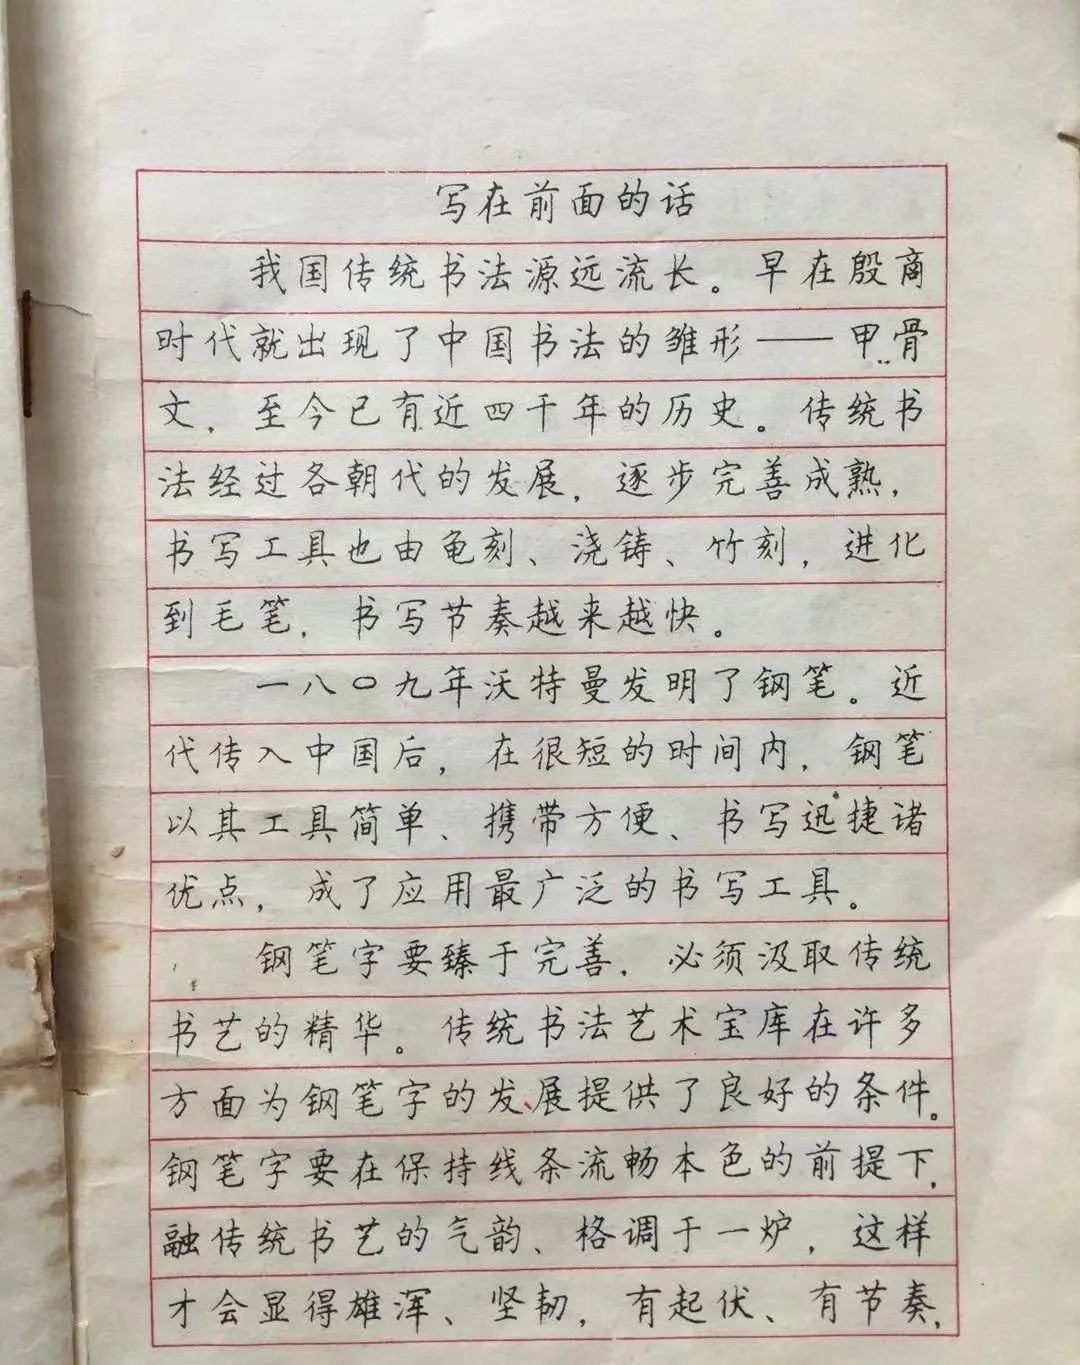 写在前面的话
我国传统书法源远流长。早在殷商
时代就出现了中国书法的雏形——甲骨
文，至今已有近四千年的历史。传统书
法经过各朝代的发展，逐步完善成熟，
书写工具也由龟刻、浇铸、竹刻，进化
到毛笔，书写节奏越来越快。
一八〇九年沃特曼发明了钢笔。近
代传入中国后，在很短的时间内，钢笔
以其工具简单、携带方便、书写迅捷诸
优点，成了应用最广泛的书写工具。
钢笔字要臻于完善，必须汲取传统
书艺的精华。传统书法艺术宝库在许多
方面为钢笔字的发展提供了良好的条件。
钢笔字要在保持线条流畅本色的前提下，
融传统书艺的气韵、格调于一炉，这样
才会显得雄浑、坚韧，有起伏、有节奏，